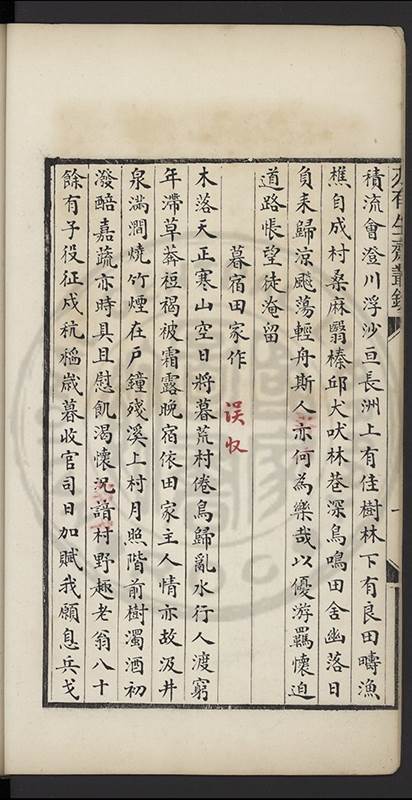 積流會澄川浮沙亘長洲上有佳樹林下有良田疇漁
樵自成村桑麻翳榛邱犬吠林巷深鳥鳴田舍幽落日
負耒歸涼颸蕩輕舟斯人亦何為樂哉以優游羈懷迫
道路悵望徒淹留
暮宿田家作
误收
木落天正寒山空日將暮荒村倦鳥歸亂水行人渡窮
年滯草莽裋褐被霜露晚宿依田家主人情亦故汲井
泉滿澗燒竹煙在戶鐘殘溪上村月照階前樹濁酒初
潑醅嘉蔬亦時具且慰飢渴懷況諳村野趣老翁八十
餘有子役征戍秔稻歲暮收官司日加賦我願息兵戈